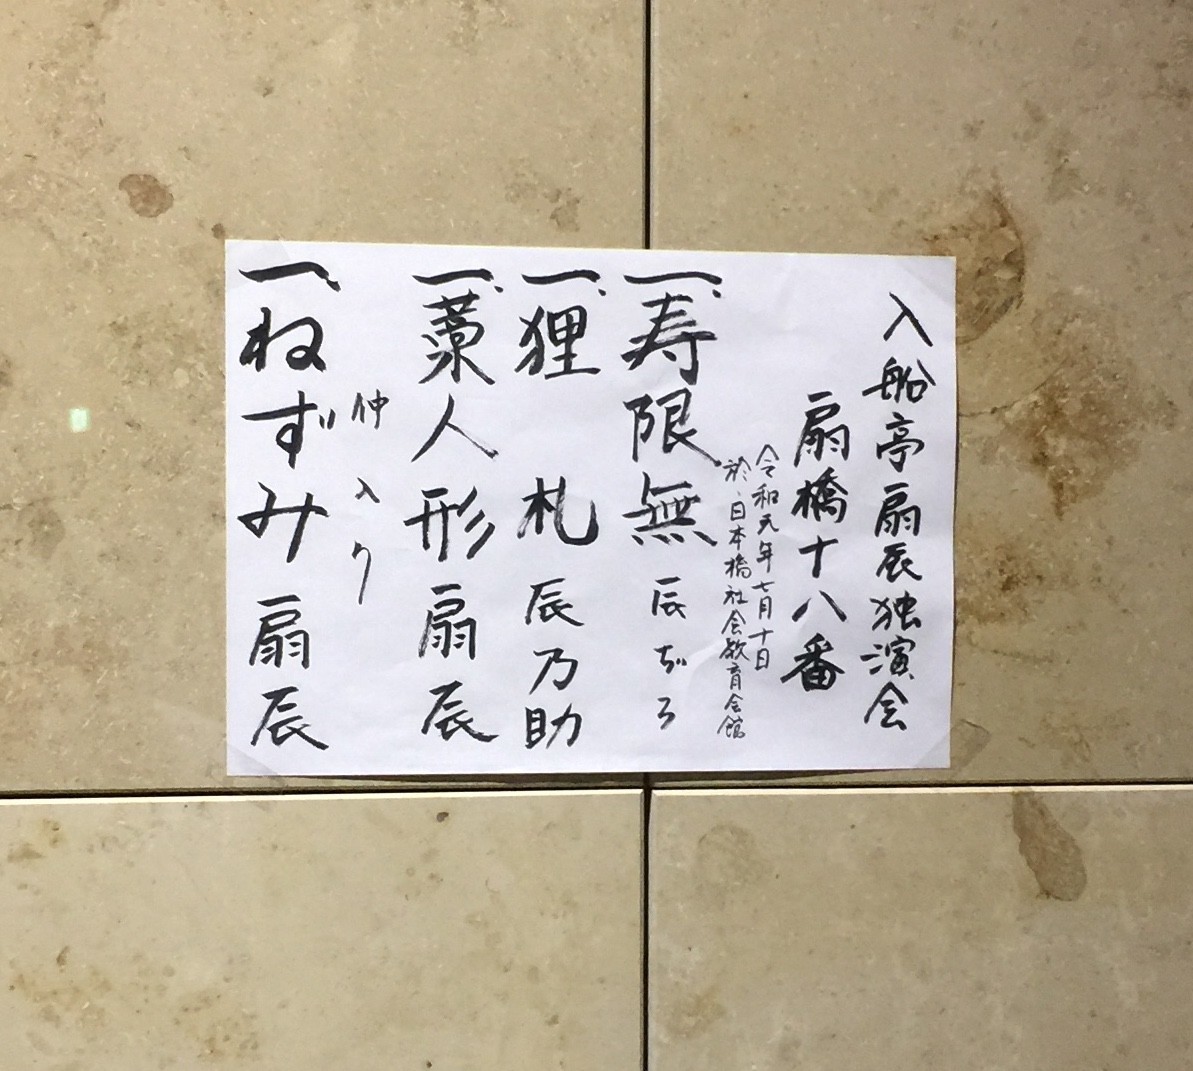 入船亭扇辰独演会
扇橋十八番
令和元年七月十日
於、日本橋社会教育会館
一、寿限無 辰ぢろ
一、狸札 辰乃助
一、藁人形 扇辰
仲入り
一、ねずみ 扇辰